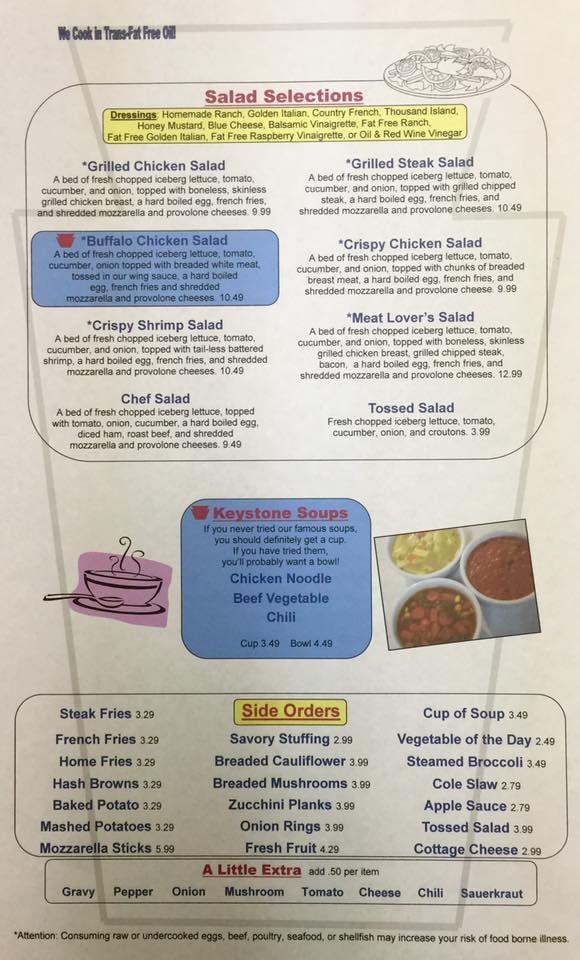 We Cook in Trans-Fat Free Oil!
Salad Selections
Dressings: Homemade Ranch, Golden Italian, Country French, Thousand Island,
Honey Mustard, Blue Cheese, Balsamic Vinaigrette, Fat Free Ranch,
Fat Free Golden Italian, Fat Free Raspberry Vinaigrette, or Oil & Red Wine Vinegar
*Grilled Chicken Salad
A bed of fresh chopped iceberg lettuce, tomato,
cucumber, and onion, topped with boneless, skinless
grilled chicken breast, a hard boiled egg, french fries,
and shredded mozzarella and provolone cheeses. 9.99
*Grilled Steak Salad
A bed of fresh chopped iceberg lettuce, tomato,
cucumber, and onion, topped with grilled chipped
steak, a hard boiled egg, french fries, and
shredded mozzarella and provolone cheeses. 10.49
*Buffalo Chicken Salad
A bed of fresh chopped iceberg lettuce, tomato,
cucumber, onion topped with breaded white meat,
tossed in our wing sauce, a hard boiled
egg, french fries and shredded
mozzarella and provolone cheeses. 10.49
*Crispy Chicken Salad
A bed of fresh chopped iceberg lettuce, tomato,
cucumber, and onion, topped with chunks of breaded
breast meat, a hard boiled egg, french fries, and
shredded mozzarella and provolone cheeses.
9.99
*Crispy Shrimp Salad
A bed of fresh chopped iceberg lettuce, tomato,
cucumber, and onion, topped with tail-less battered
shrimp, a hard boiled egg, french fries, and shredded
mozzarella and provolone cheeses. 10.49
*Meat Lover's Salad
A bed of fresh chopped iceberg lettuce, tomato,
cucumber, and onion, topped with boneless, skinless
grilled chicken breast, grilled chipped steak,
bacon, a hard boiled egg, french fries, and
shredded mozzarella and provolone cheeses. 12.99
Chef Salad
A bed of fresh chopped iceberg lettuce, topped
with tomato, onion, cucumber, a hard boiled egg,
diced ham, roast beef, and shredded
mozzarella and provolone cheeses. 9.49
Tossed Salad
Fresh chopped iceberg lettuce, tomato,
cucumber, onion, and croutons. 3.99
Keystone Soups
If you never tried our famous soups,
you should definitely get a cup.
If you have tried them,
you'll probably want a bowl!
Chicken Noodle
Beef Vegetable
Chili
Cup 3.49 Bowl 4.49
Side Orders
Steak Fries 3.29
French Fries 3.29
Home Fries 3.29
Hash Browns 3.29
Baked Potato 3.29
Mashed Potatoes 3.29
Mozzarella Sticks 5.99
Savory Stuffing 2.99
Breaded Cauliflower 3.99
Breaded Mushrooms 3.99
Zucchini Planks 3.99
Onion Rings 3.99
Fresh Fruit 4.29
Cup of Soup 3.49
Vegetable of the Day 2.49
Steamed Broccoli 3.49
Cole Slaw 2.79
Apple Sauce 2.79
Tossed Salad 3.99
Cottage Cheese 2.99
A Little Extra add .50 per item
Gravy Pepper Onion Mushroom Tomato Cheese Chili Sauerkraut
*Attention: Consuming raw or undercooked eggs, beef, poultry, seafood, or shellfish may increase your risk of food borne illness.